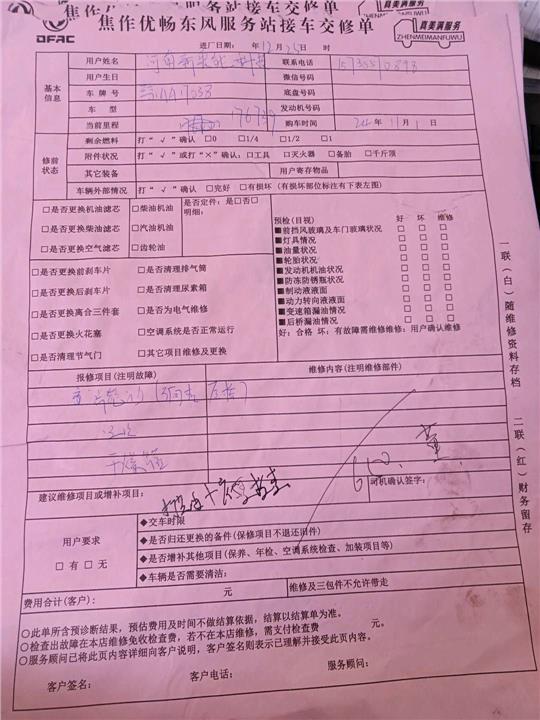 焦作优畅东风服务站接车交修单
DFAC
焦作优畅东风服务站接车交修单
真美满服务
ZHENMEIMANFUWU
进厂日期: 年12月25日 时
基本信息
用户姓名
联系电话
用户生日
微信号码
车牌号
底盘号码
车型
发动机号码
当前里程 176739
购车时间 24年11月1日
修前状态
剩余燃料 打“√”确认 □0 □1/4 □1/2 □1
附件状况 打“√”或打“×”确认:□工具 □灭火器 □备胎 □千斤顶
其它装备 用户寄存物品
车辆外部情况 打“√”确认 □完好 □有损坏(有损坏部位标注有下表左图)
□是否更换机油滤芯 □柴油机油 是否定件: 是□否□
明细:
□是否更换柴油滤芯 □汽油机油
□是否更换空气滤芯 □齿轮油
□是否更换前刹车片 □是否清理排气筒
□是否更换后刹车片 □是否清理尿素箱
□是否更换离合三件套 □是否为电气维修
□是否更换火花塞 □空调系统是否正常运行
□是否清理节气门 □其它项目维修及更换
预检(目视) 好 坏 维修
■前挡风玻璃及车门玻璃状况 □ □ □
■灯具情况 □ □ □
■油量状况 □ □ □
■轮胎状况 □ □ □
■发动机机油状况 □ □ □
■防冻防锈瓶状况 □ □ □
■制动液液面 □ □ □
■动力转向液液面 □ □ □
■变速箱漏油情况 □ □ □
■后桥漏油情况 □ □ □
好: 合格 坏: 有故障需维修维修: 用户确认维修
报修项目(注明故障) 维修内容(注明维修部件)
干燥
建议维修项目或增补项目:
司机确认签字:
用户要求
□有 □无
◆交车时限
◆是否归还更换的备件(保修项目不退还旧件)
◆是否增补其他项目(保养、年检、空调系统检查、加装项目等)
◆车辆是否需要清洁:
费用合计(客户): 元 维修及三包件不允许带走
○此单所含预诊断结果,预估费用及时间不做结算依据,结算以结算单为准。
○检查出故障在本店维修免收检查费,若不在本店维修,需支付检查费 元。
○服务顾问已将此页内容详细向客户说明,客户签名则表示已理解并接受此页内容。
客户签名: 客户电话: 服务顾问:
一联(白)随维修资料存档
二联(红)财务留存